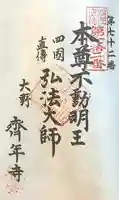 第七十二番
本尊不動明王
四國
直傳
弘法大師
大野
齊年寺